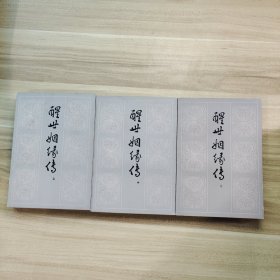 醒世姻缘传 上
醒世姻缘传
醒世姻缘传